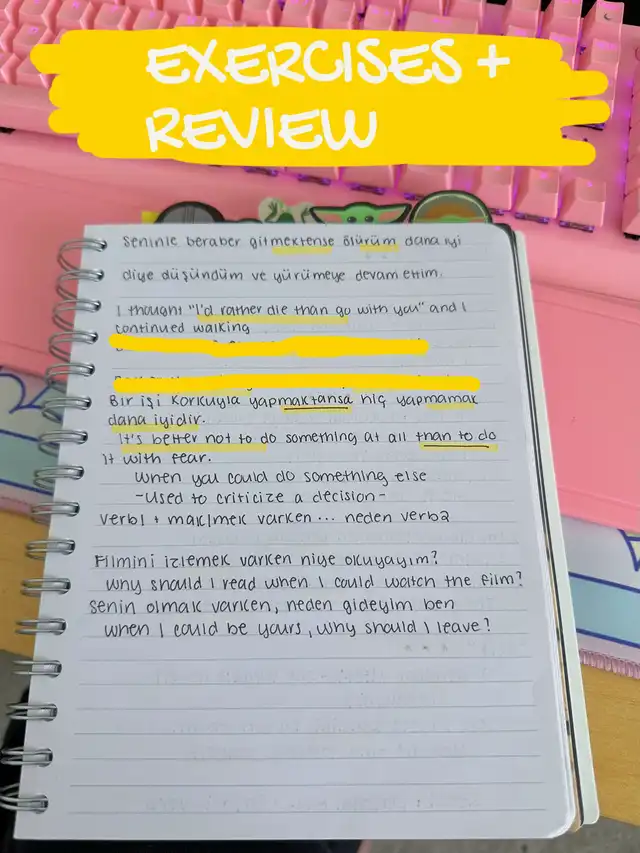 EXERCISES +
REVIEW
Seninle beraber gitmektense ölürüm daha iyi
diye düşündüm ve yürümeye devam ettim.
I thought "I'd rather die than go with you" and I
continued walking
Bir işi korkuyla yapmaktansa hiç yapmamak
daha iyidir.
It's better not to do something at all than to do
it with fear.
When you could do something else
-Used to criticize a decision-
Verb1 + mak/mek varken ... neden verb2
Filmini izlemek varken niye okuyayım?
Why should I read when I could watch the film?
Senin olmak varken, neden gideyim ben
when I could be yours, why should I leave?